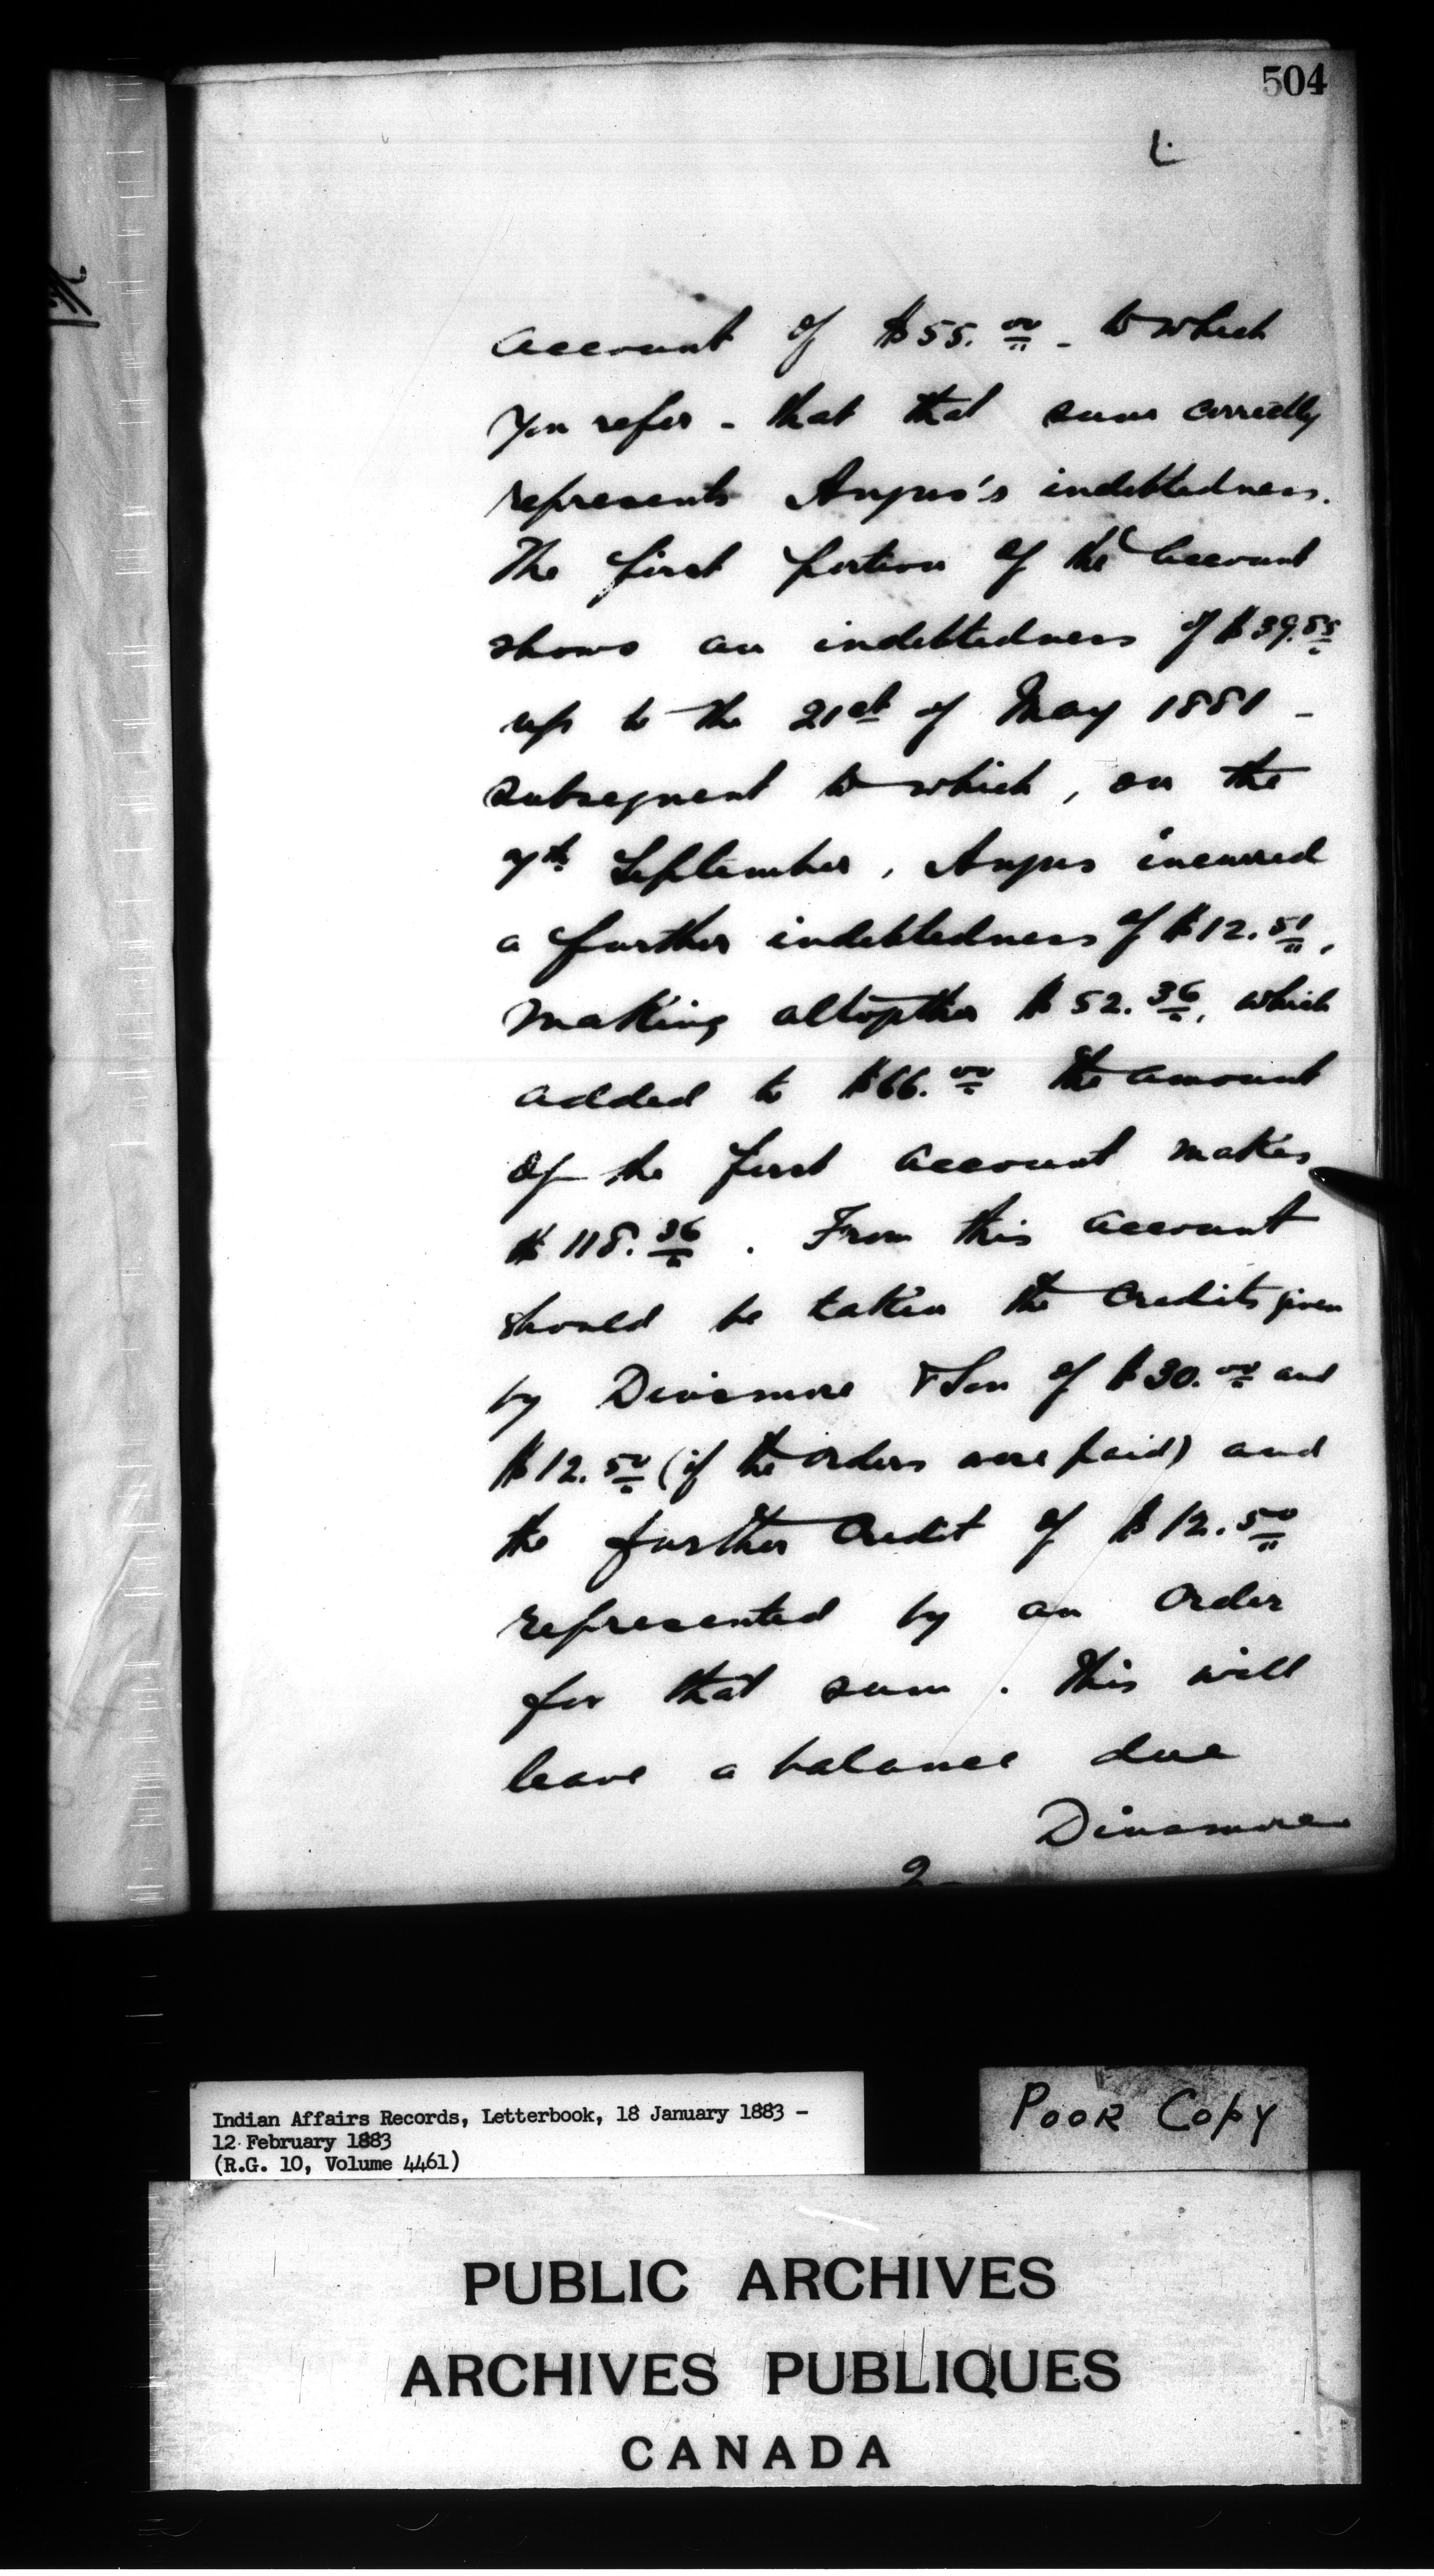 504
account of $55.00 - to which
you refer - that that sum correctly
represents Angus's indebtedness.
The first portion of the account
shows an indebtedness of $39.85
up to the 21st of May 1881 -
subsequent to which, on the
7th September, Angus incurred
a further indebtedness of $12.51,
making altogether $52.36, which
added to $66.00 the amount
of the first account makes
$118.36. From this account
should be taken the credits given
by Dinsmore & Son of $30.00 and
$12.50 (if the orders were paid) and
the further credit of $12.50
represented by an order
for that sum. This will
leave a balance due
Dinsmore
2
Indian Affairs Records, Letterbook, 18 January 1883 -
12 February 1883
(R.G. 10, Volume 4461)
POOR COPY
PUBLIC ARCHIVES
ARCHIVES PUBLIQUES
CANADA